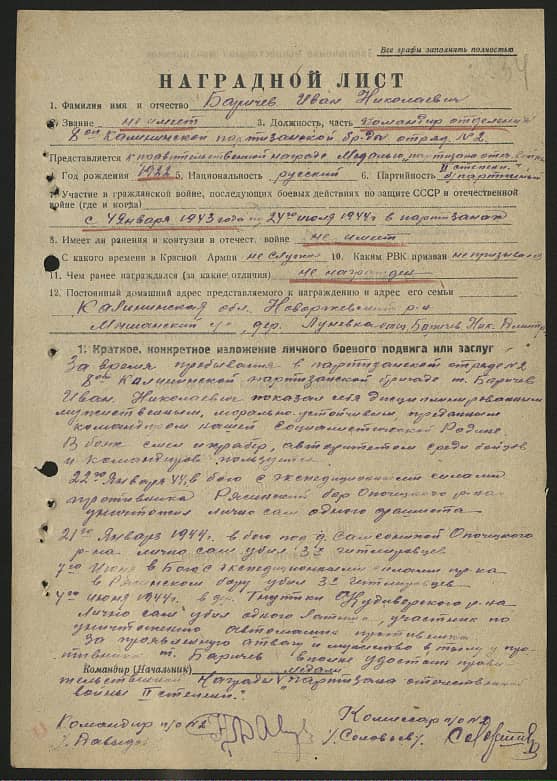 Все графы заполнять полностью
34
НАГРАДНОЙ ЛИСТ
1. Фамилия имя и отчество Баричев Иван Николаевич
2. Звание не имеет 3. Должность, часть Командир отделения
8ой Калининской партизанской бр-ды отряд №2
Представляется к правительственной награде Медалью партизана отеч. войны
II степени
4. Год рождения 1922 5. Национальность русский 6. Партийность б/партийный
7. Участие в гражданской войне, последующих боевых действиях по защите СССР и отечественной
войне (где и когда)
с 4 января 1943 года по 24го июля 1944г в партизанах
8. Имеет ли ранения и контузии в отечест. войне не имеет
9. С какого времени в Красной Армии не служил 10. Каким РВК призван не призывался
11. Чем ранее награждался (за какие отличия) не награжден
12. Постоянный домашний адрес представляемого к награждению и адрес его семьи
Калининская обл. Новоржевский р-н
дер. Луневка отец Баричев Ник.
1. Краткое, конкретное изложение личного боевого подвига или заслуг
За время пребывания в партизанской отряде №2
8ой Калининской партизанской бригаде т. Баричев
Иван Николаевич показал себя дисциплинированным
мужественным, морально-устойчивым, преданным
командиром нашей Социалистической Родине.
В боях смел и храбр, авторитетом среди бойцов
и командиров пользуется.
22го Января 44, в бою с экспедиционными силами
противника Рясинский бор Опочецкого р-на
уничтожил лично сам одного фашиста
21го Января 1944г. в бою под д. Самсонихой Опочецкого
р-на лично сам убил 3х гитлеровцев
7го Июня в Бою с экспедиционными силами пр-ка
в Рясинском бору убил 3х гитлеровцев
4го июня 1944г. в д. р-на
лично сам убил одного участник по
уничтожению автомашин противника
За проявленную отвагу и мужество в тылу у про-
тивника т. Баричев вполне удостоен прави-
Командир (Начальник) медали
тельственной Награды "партизана отечественной
войны II степени".
Командир п/о №2
/Давыдов
Комиссар п/о №2
/Соловьев/